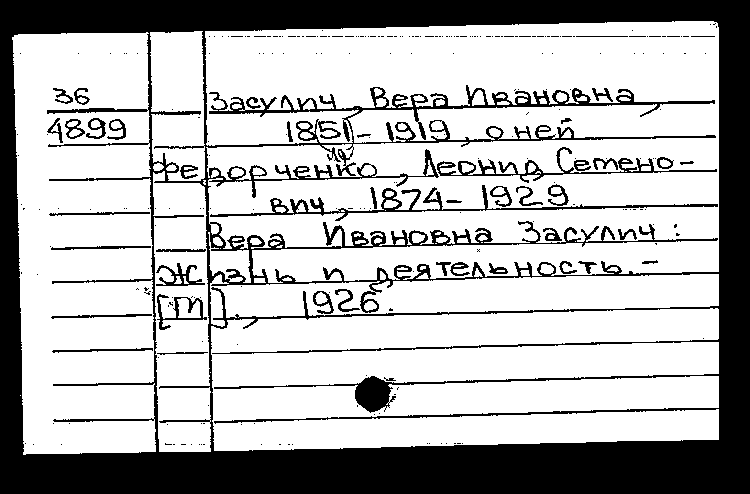 36
4899
Засулич, Вера Ивановна,
1851 - 1919, о ней
Федорченко, Леонид Семено-
вич, 1874 - 1929
Вера Ивановна Засулич:
жизнь и деятельность. -
[М]., 1926.